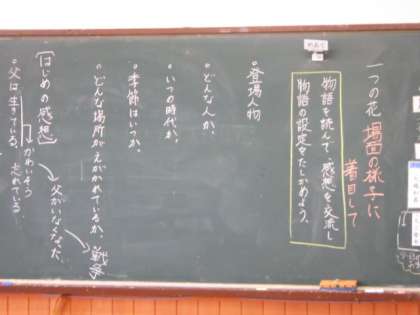 一つの花 場面の様子に
着目して
めあて
物語を読んで、感想を交流し
物語の設定をたしかめよう。
・登場人物
・どんな人か。
・いつの時代か。
・季節はいつか。
・どんな場所がえがかれているか。
戦争
〔はじめの感想〕
父がいなくなった
かわいそう
・父は生きている。
忘れている